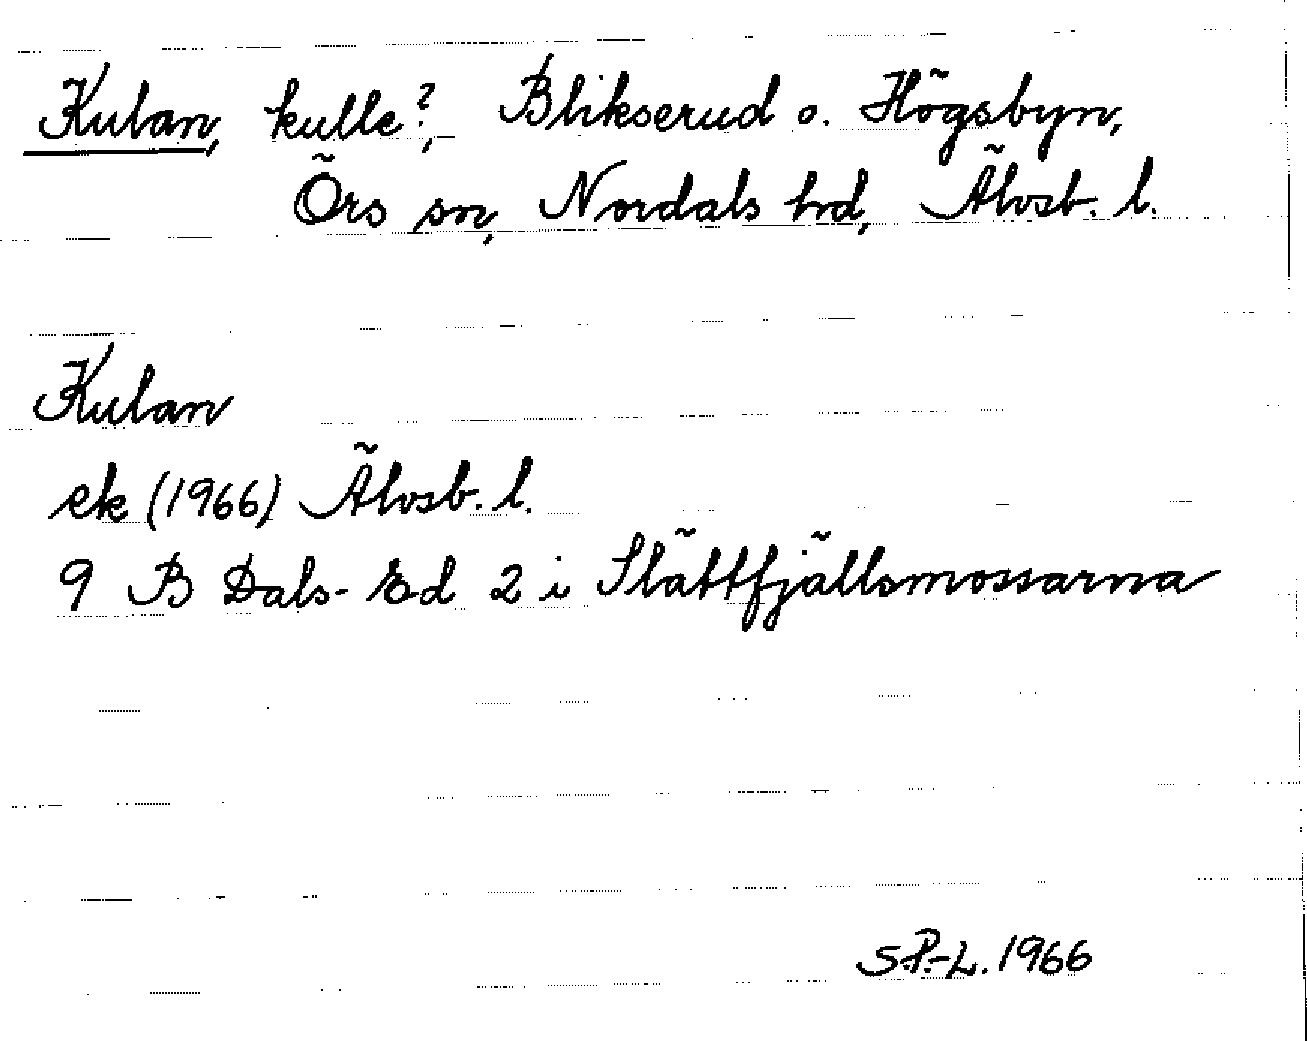 Kulan, kulle?, Blikserud o. Högsbyn,
Örs sn, Nordals hd, Älvsb. l.
Kulan
ek (1966) Älvsb. l.
9 B Dals-Ed 2 i Slättfjällsmossarna
S.P.-L. 1966